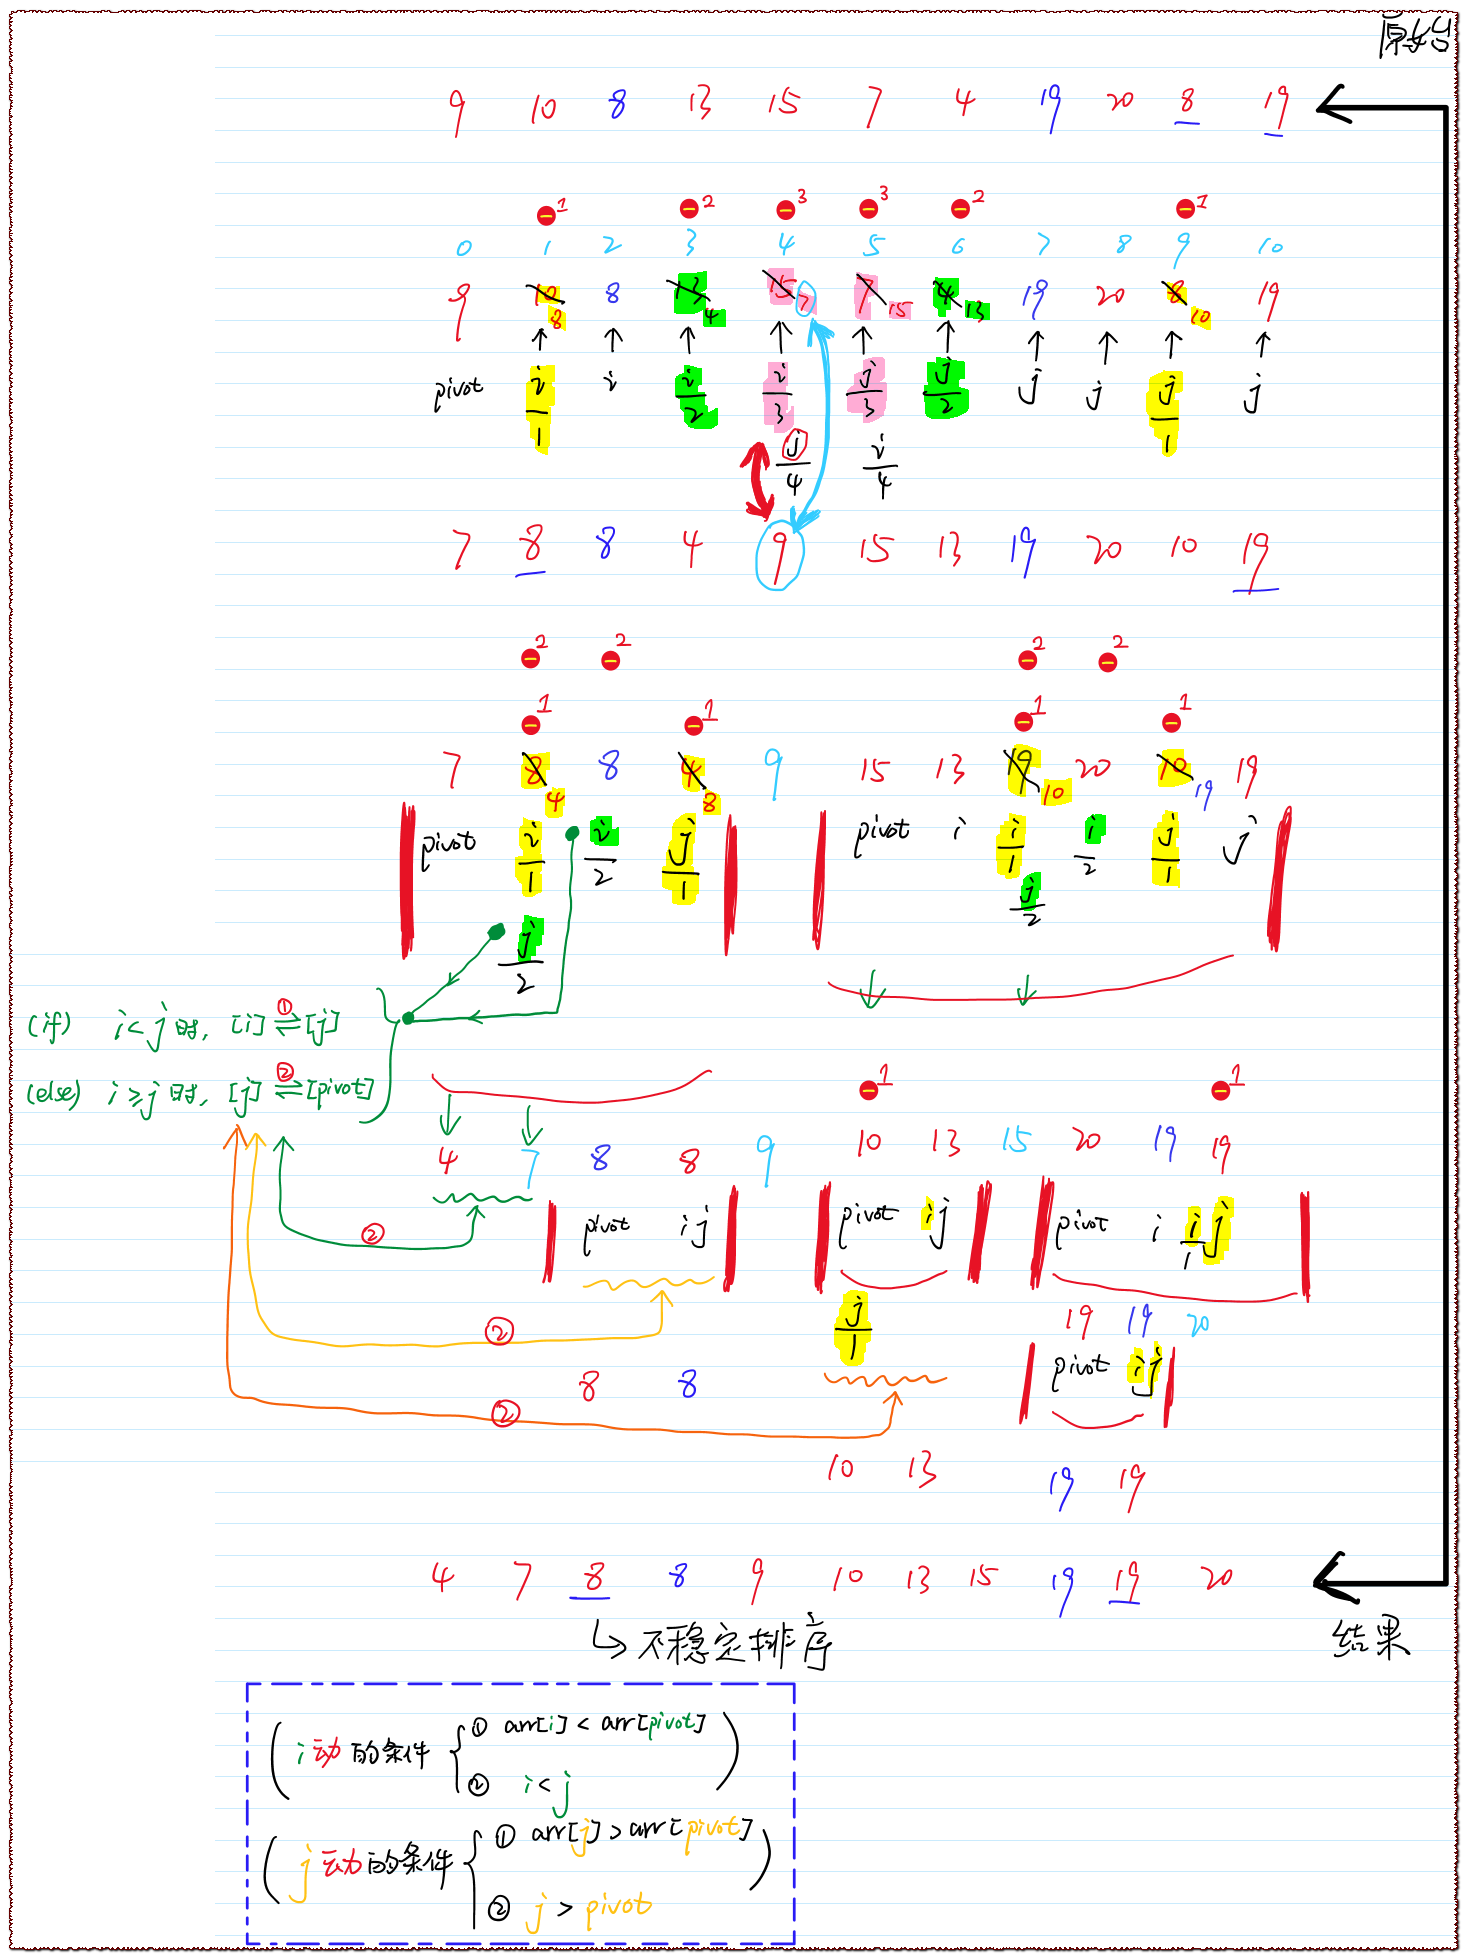 原始
9 10 8 13 15 7 4 19 20 8 19
1 2 3 3 2 1
0 1 2 3 4 5 6 7 8 9 10
9 10 8 13 15 7 4 19 20 8 19
8 4 7 15 13 10
pivot i/1 i i/2 i/3 j/3 j/2 j j j/1 j
j/4 i/4
7 8 8 4 9 15 13 19 20 10 19
2 2 2 2
1 1 1 1
7 8 8 4 9 15 13 19 20 10 19
4 8 10 19
pivot i/1 i/2 j/1 pivot i i/1 i/2 j/1 j
j/2 j/2
(if) i<j时, [i] ①⇌ [j]
(else) i≥j时, [j] ②⇌ [pivot]
1 1
4 7 8 8 9 10 13 15 20 19 19
pivot i j pivot i j pivot i i/1 j
②
j/1 19 19 20
②
pivot i j
8 8
②
10 13 19 19
4 7 8 8 9 10 13 15 19 19 20
↳ 不稳定排序 结果
( i动的条件 { ① arr[i] < arr[pivot]
② i<j )
( j动的条件 { ① arr[j] > arr[pivot]
② j > pivot )